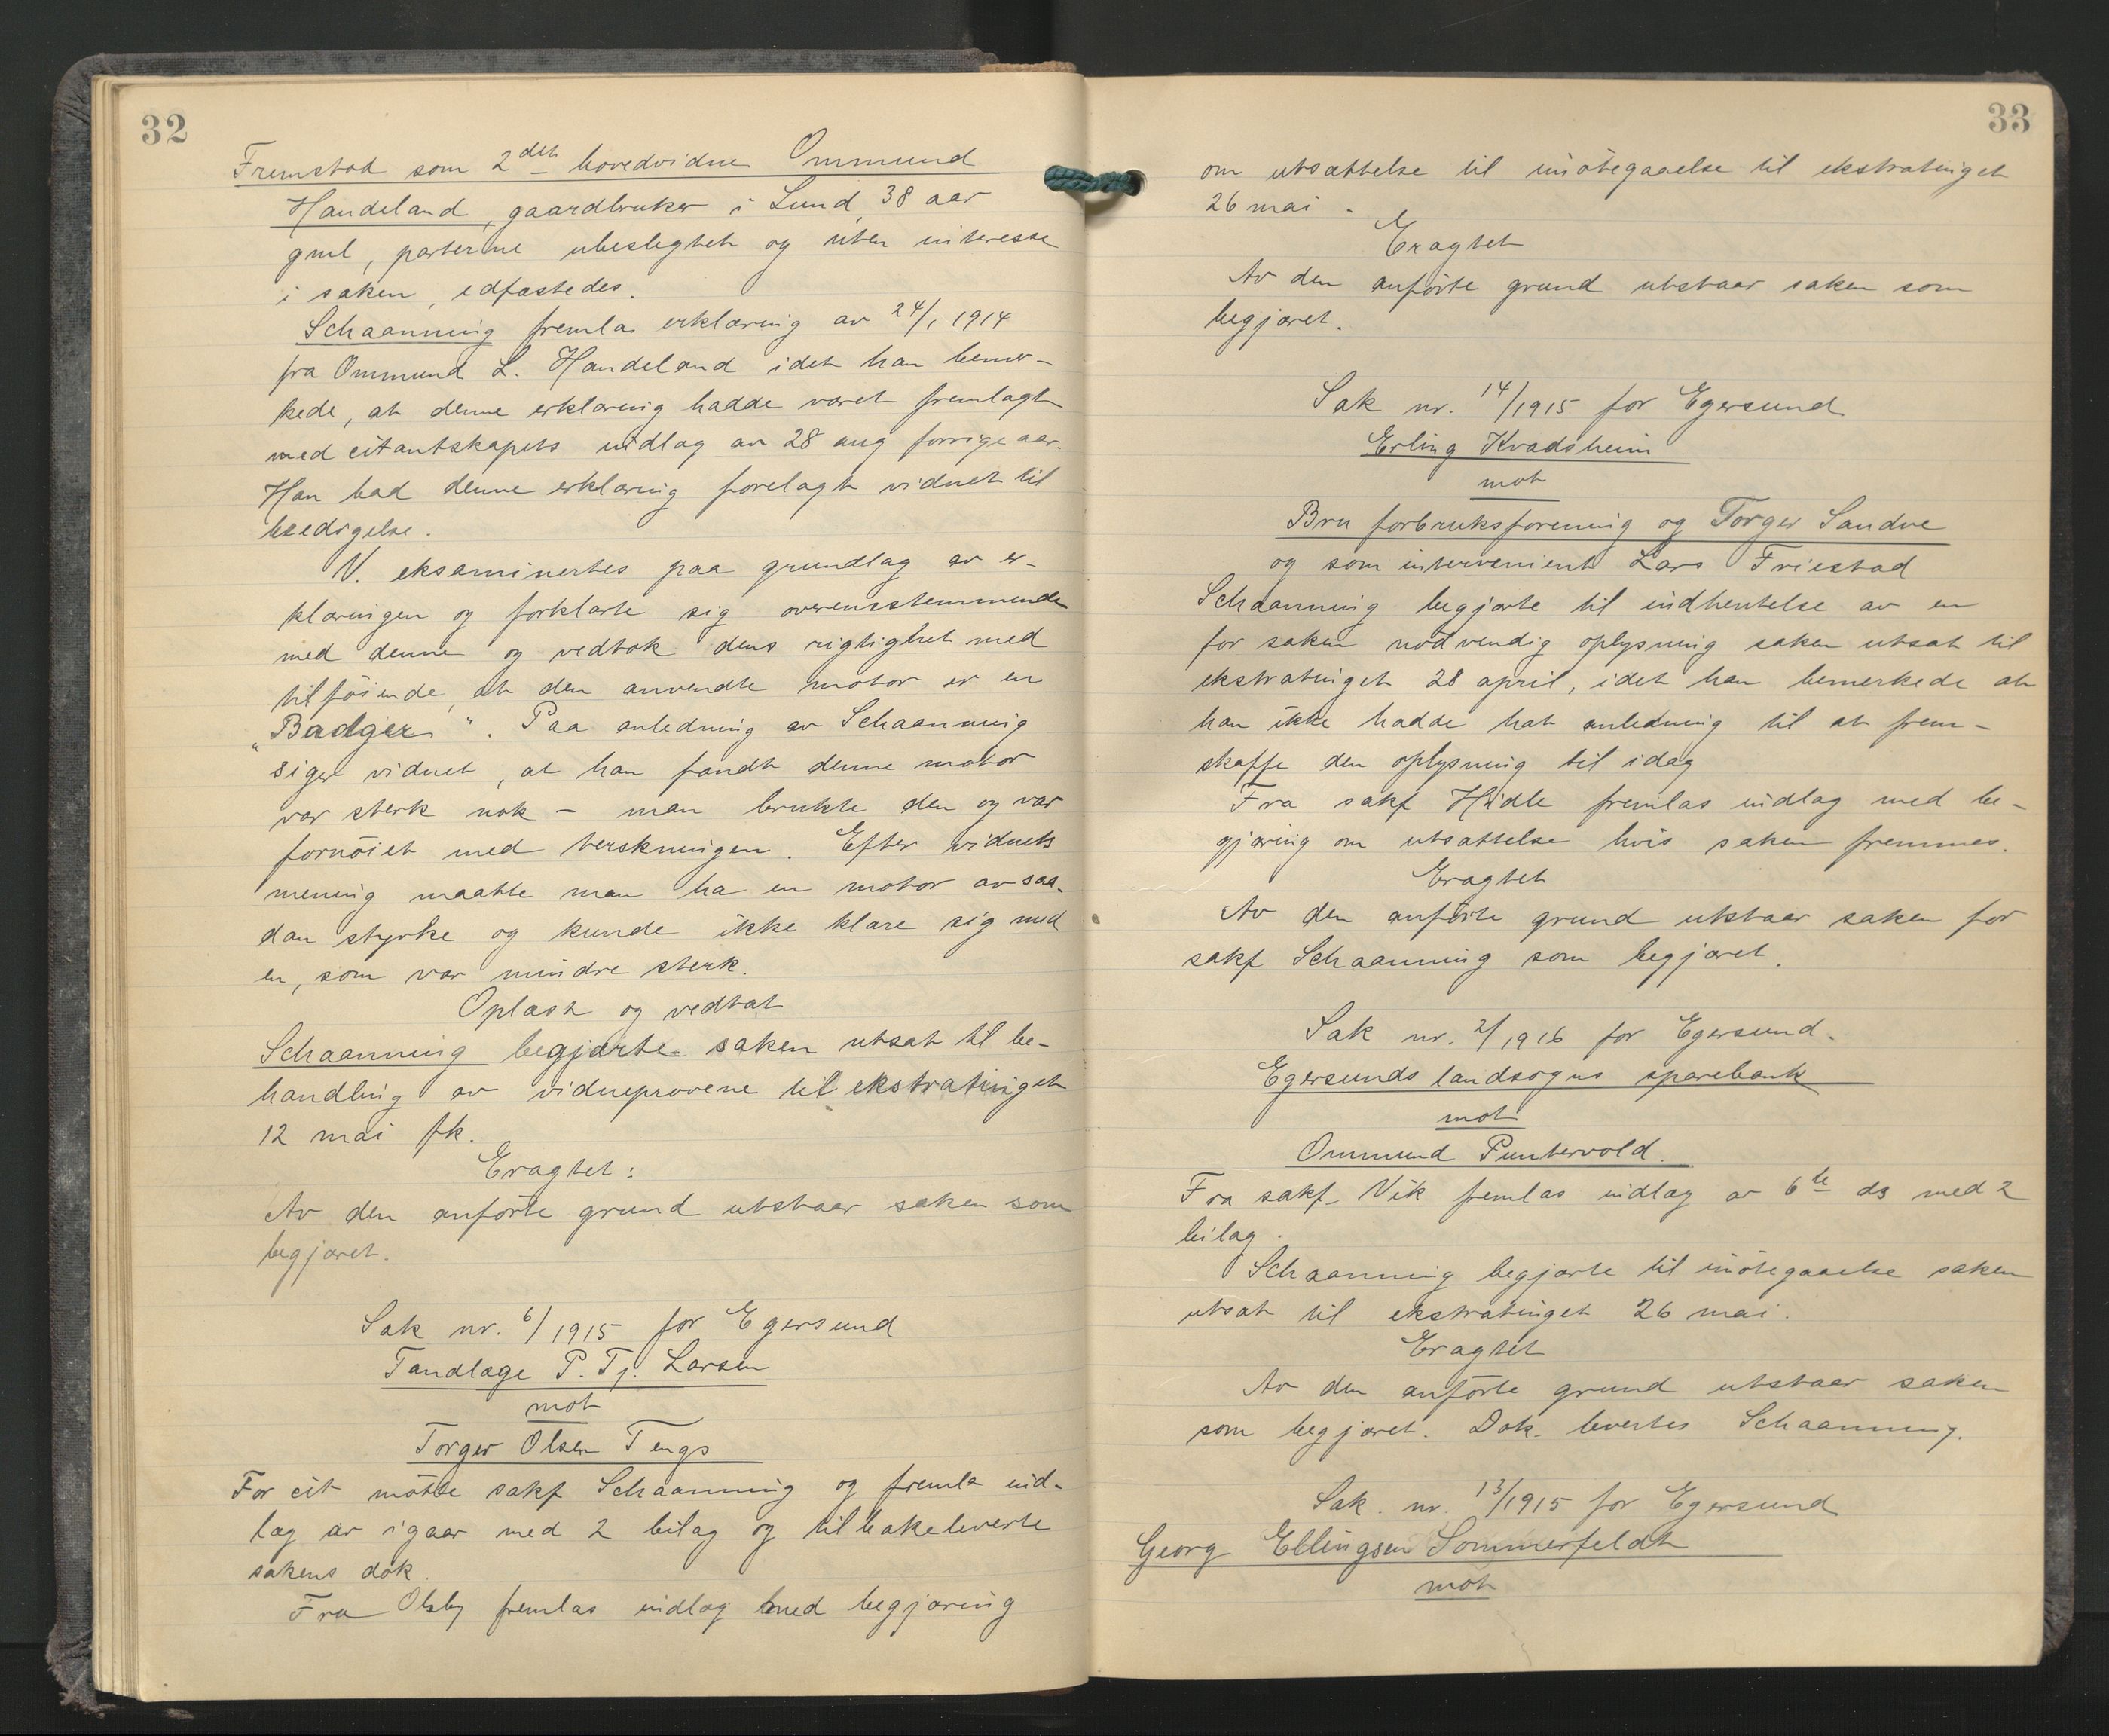 32
Fremstod som 2det hovedvidne Ommund
Handeland, gaardbruker i Lund, 38 aar
gml, parterne ubeslegtet og uten interesse
i saken, edfæstedes.
Schaanning fremla erklæring av 24/1 1914
fra Ommund L. Handeland idet han bemer-
kede, at denne erklæring hadde været fremlagt
med citantskapets indlag av 28 aug forrige aar.
Han bad denne erklæring forelagt vidnet til
beedigelse.
V. eksaminertes paa grundlag av er-
klæringen og forklarte sig overensstemmende
med denne og vedtok dens rigtighet med
tilföiende, at den anvendte motor er en
„Badger". Paa anledning av Schaanning
siger vidnet, at han fandt denne motor
var sterk nok – man brukte den og var
fornöiet med terskningen. Efter vidnets
mening maatte man ha en motor av saa-
dan styrke og kunde ikke klare sig med
en, som var mindre sterk.
Oplæst og vedtat
Schaanning begjærte saken utsat til be-
handling av vidneprovene til ekstratinget
12 mai fk.
Eragtet:
Av den anförte grund utstaar saken som
begjæret.
Sak nr. 6/1915 for Egersund
Tandlæge P. Tj. Larsen
mot
Torger Olsen Tengs
For cit mötte sakf Schaanning og fremla ind-
læg av igaar med 2 bilag og tilbakeleverte
sakens dok.
Fra Olsby fremlas indlæg med begjæring
33
om utsættelse til imötegaaelse til ekstratinget
26 mai.
Eragtet
Av den anförte grund utstaar saken som
begjæret.
Sak nr. 14/1915 for Egersund
Erling Kvadsheim
mot
Bru forbruksforening og Torger Sandve
og som intervenient Lars Friestad
Schaanning begjærte til indhentelse av en
for saken nödvendig oplysning saken utsat til
ekstratinget 28 april, idet han bemerkede at
han ikke hadde hat anledning til at frem-
skaffe den oplysning til idag
Fra sakf Hidle fremlas indlag med be-
gjæring om utsættelse hvis saken fremmes.
Eragtet
Av den anförte grund utstaar saken for
sakf Schaanning som begjæret.
Sak nr. 2/1916 for Egersund.
Egersunds landsogns sparebank
mot
Ommund Puntervold.
Fra sakf Vik fremlas indlæg av 6te ds med 2
bilag.
Schaanning begjærte til imötegaaelse saken
utsat til ekstratinget 26 mai.
Eragtet
Av den anförte grund utstaar saken
som begjæret. Dok. levertes Schaanning.
Sak. nr. 13/1915 for Egersund
Georg Ellingsen Sommerfeldt
mot